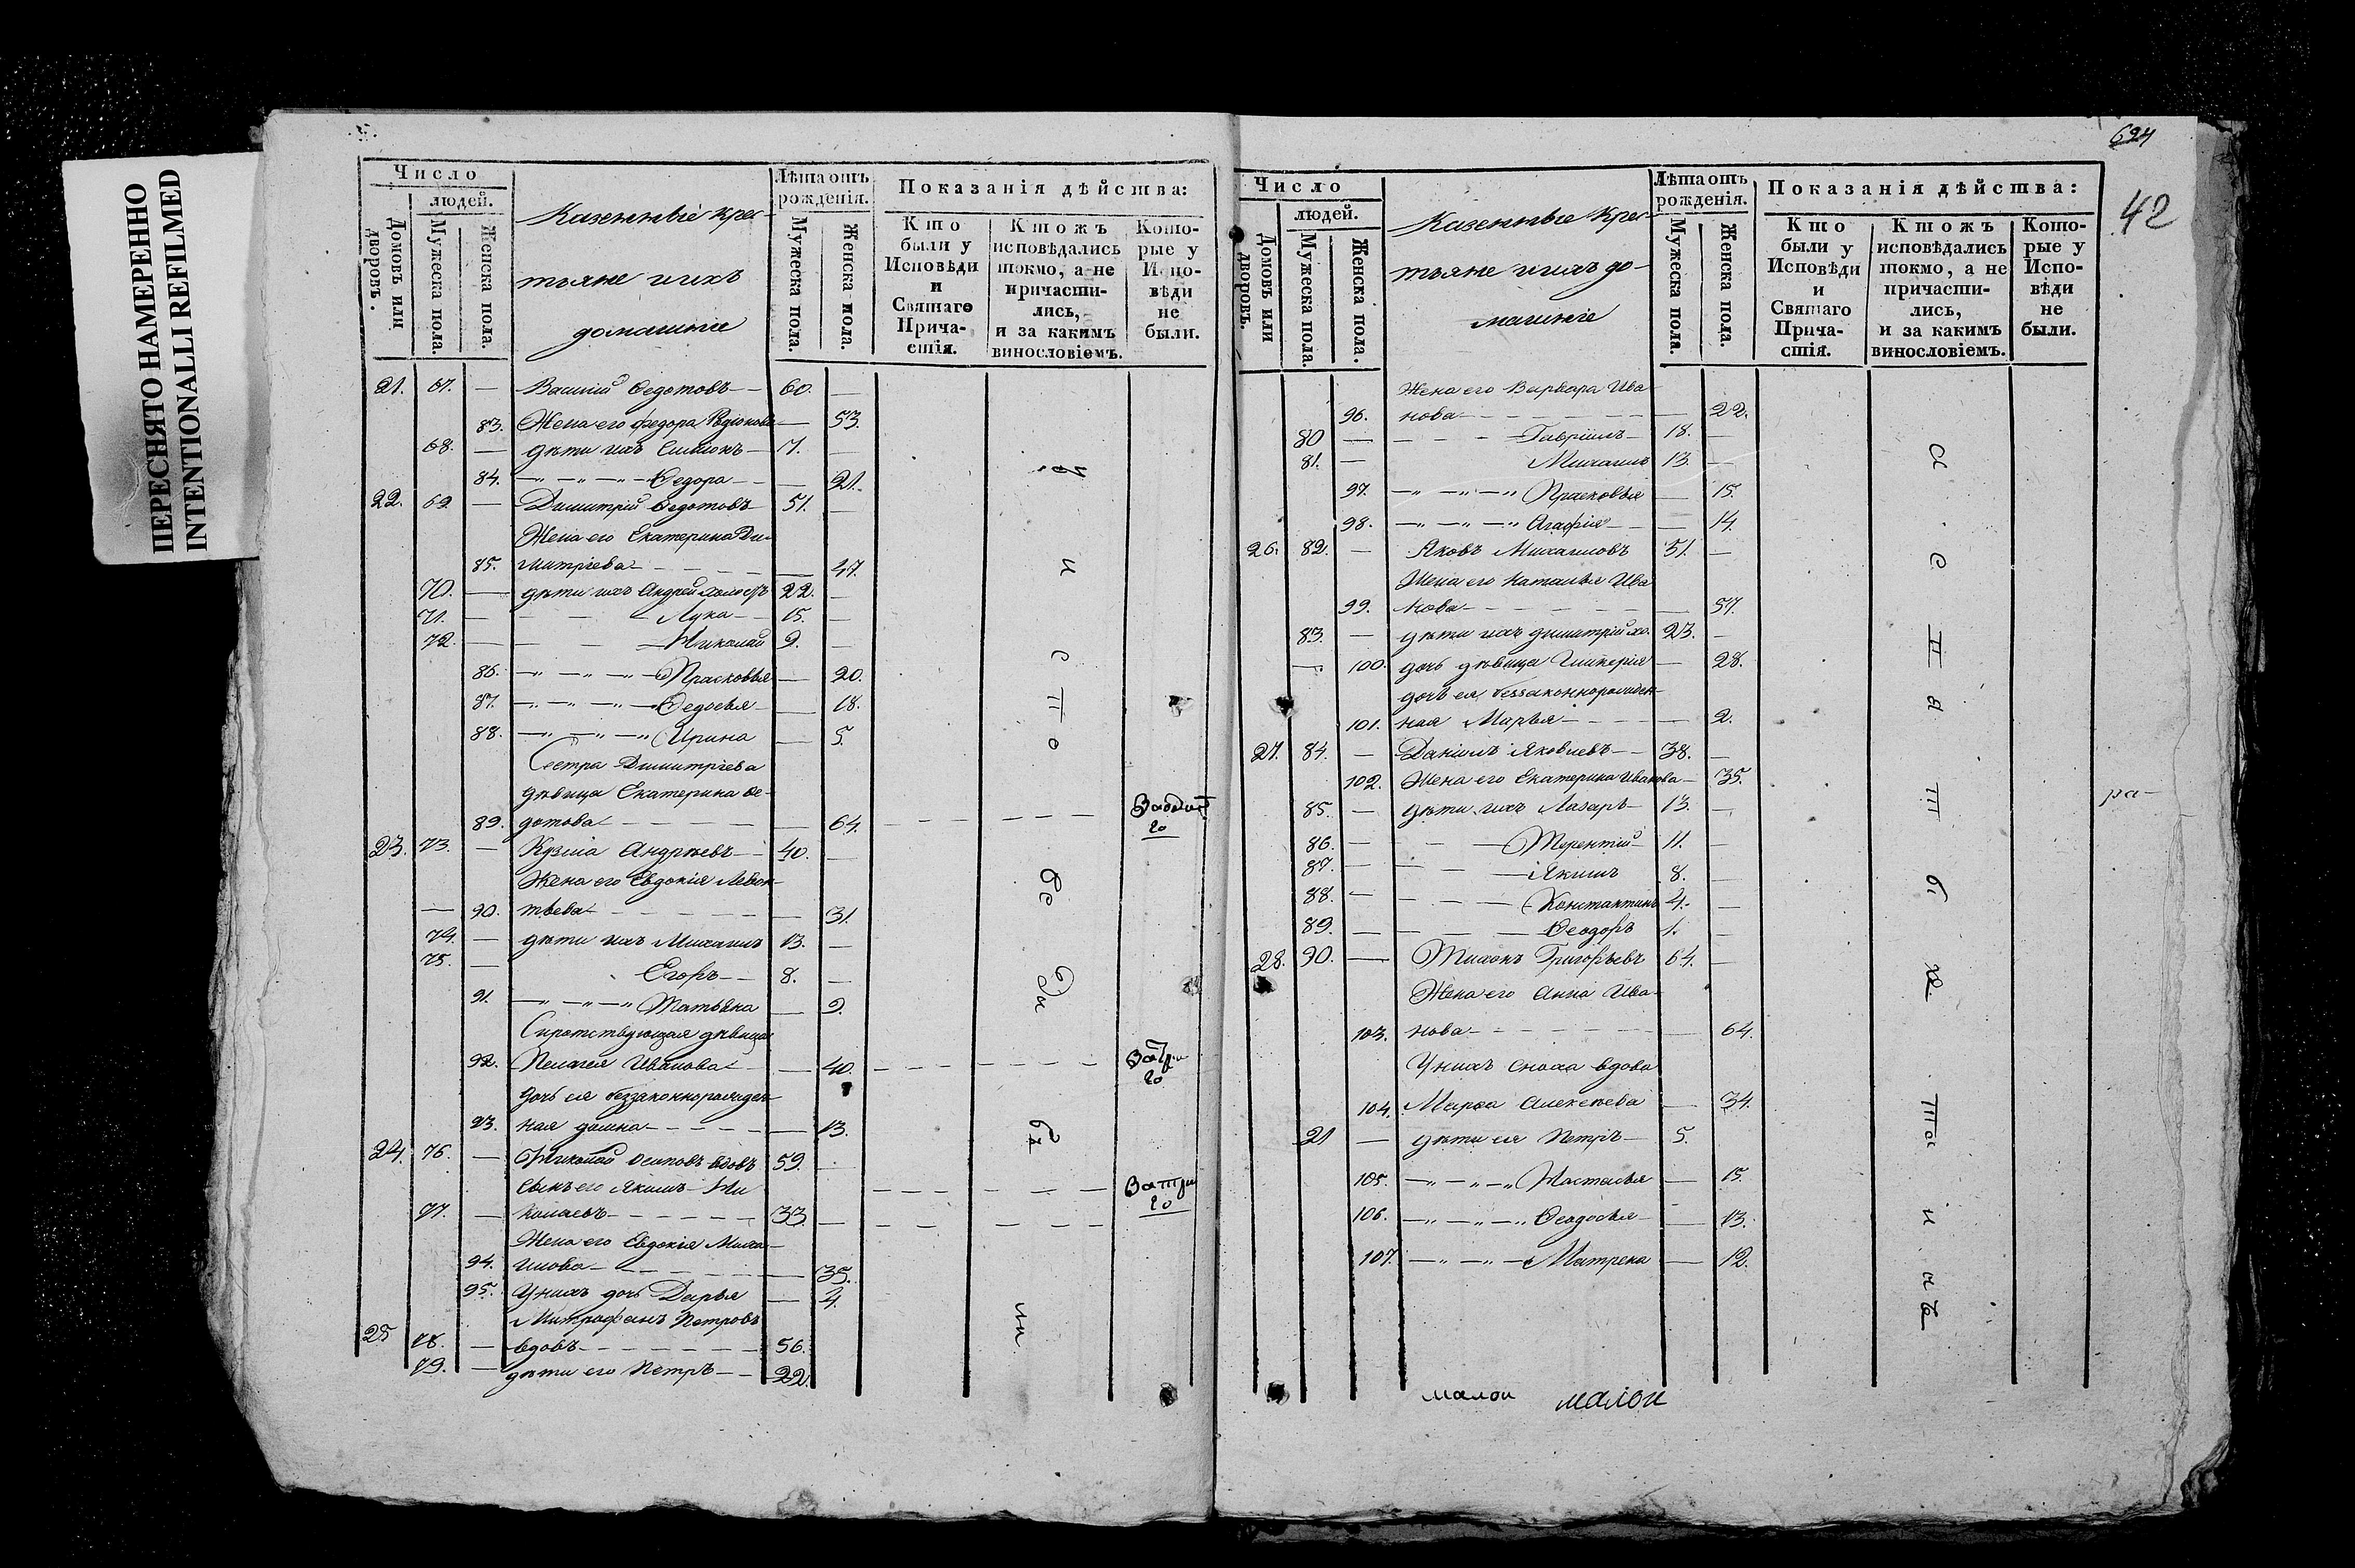 ПЕРЕСНЯТО НАМЕРЕННО
INTENTIONALLI REFILMED
Число
людей.
Домовъ или дворовъ.
Мужеска пола.
Женска пола.
Казенные крес-
тьяне и ихъ
домашние
Лѣта отъ
рожденія.
Мужеска пола.
Женска пола.
Показанія дѣйства:
Кто
были у
Исповѣди
и
Святаго
Прича-
стія.
Ктожъ
исповѣдались
токмо, а не
причасти-
лись,
и за какимъ
винословіемъ.
Кото-
рые у
Испо-
вѣди
не
были.
21. 67. — Василий Ѳедотовъ — 60. —
83. Жена его Федора Родіонова — 53.
68. — дѣти ихъ Симионъ — 17. —
84. —"—"—"— Ѳедора — — 21.
22. 69 — Димитрій Ѳедотовъ 51. —
Жена его Екатерина Ди-
85. митріева — — 47.
70. — дѣти ихъ Андрей холостъ 22. —
71. — — Лука — 15. —
72. — — Николай 9. —
86. —"—"—"— Прасковья — 20.
87. —"—"—"— Ѳедосья — 18.
88. —"—"—" Ирина — 5.
Сестра Димитріева
дѣвица Екатерина Ѳе-
89. дотова — — 64.
23. 73. — Кузма Андрѣевъ — 40. —
Жена его Евдокія Левон-
— 90. тьева — — 31.
74. — дѣти ихъ Михаилъ 13. —
75. — Егоръ — 8. —
91. —"—"—" Татьяна — 9.
Сиротствующая дѣвица
92. Пелагея Иванова — — 40.
дочь ея беззаконнорожден-
93. ная домна — — 13.
24. 76. — Николай Осиповъ вдовъ 59. —
сынъ его Якимъ Ни
77. — колаевъ — 33. —
Жена его Евдокія Миха-
94. илова — — 35.
95. У нихъ дочь Дарья — 4.
Митрофанъ Петровъ
25 78. — вдовъ — 56.
79. — дѣти его Петръ — 22.
624
42
Число
людей.
Домовъ или дворовъ.
Мужеска пола.
Женска пола.
Казенные крес-
тьяне и ихъ до-
машніе
Лѣта отъ
рожденія.
Мужеска пола.
Женска пола.
Показанія дѣйства:
Кто
были у
Исповѣди
и
Святаго
Прича-
стія.
Ктожъ
исповѣдались
токмо, а не
причасти-
лись,
и за какимъ
винословіемъ.
Кото-
рые у
Испо-
вѣди
не
были.
Жена его Варвара Ива
96. нова — — 22.
80 — — Гавріилъ — 18. —
81. — Михаилъ 13. —
97. —"—"—" Прасковья — 15.
98. —"—"—" Агафія — — 14.
26. 82. — Яковъ Михаиловъ 51. —
Жена его Наталья Ива
99. нова — — 57.
83. — дѣти ихъ димитрій хо. 23. —
— 100. дочь дѣвица Гликерія — 28.
дочь ея беззаконнорожден-
101. ная Марья — — 2.
27. 84. — Даніилъ Яковлевъ — 38. —
102. Жена его Екатерина Иванова — 35.
85. — дѣти ихъ Лазарь — 13. —
86. — — Терентій — 11. —
87. — — Якимъ 8. —
88. — — Константинъ 4. —
89. — — Ѳеодоръ 1. —
28. 90. — Тихонъ Григорьевъ 64. —
Жена его Анна Ива-
103. нова — — 64.
У нихъ сноха вдова
104. Марѳа Алексѣева — 34.
21 — дѣти ея Петръ — 5.
105. —"—"—" Настасья — 15.
106. —"—"—" Ѳеодосья — — 13.
107. —"—"— Матрена — 12.
ра-
малои малои